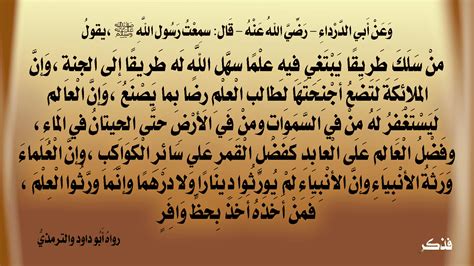 وَعَنْ أَبي الدَّرْداءِ – رَضِيَ اللهُ عَنْهُ – قَال: سمِعْتُ رَسُول اللَّهِ ﷺ ، يقولُ
مِنْ سَلَكَ طَرِيقًا يَبْتَغِي فِيهِ علْمًا سهَّل اللَّه لَه طَرِيقًا إلَى الجنةِ ، وَإنَّ
الملائِكَةَ لَتَضَعُ أجْنِحَتَهَا لطالب الْعِلْمِ رِضًا بما يَصْنَعُ ، وَإنَّ الْعالِم
لَيَسْتَغْفِرُ لَهُ منْ في السَّمَواتِ ومنْ في الأرْضِ حتَّى الحِيتانُ في الماءِ ،
وفَضْلُ الْعَالِم عَلَى الْعابِدِ كَفَضْلِ الْقَمر عَلي سَائر الْكَوَاكِبِ ، وإنَّ الْعُلَماءَ
وَرَثَةُ الأنْبِياءِ وإنَّ الأنْبِياءَ لَمْ يُورِّثُوا دِينَارًا وَلا دِرْهَمًا وإنَّما ورَّثُوا الْعِلْمَ ،
فَمنْ أَخَذَهُ أَخَذَ بِحظٍّ وَافِرٍ
رواهُ أبُو داود والترمذيُّ
فذكر